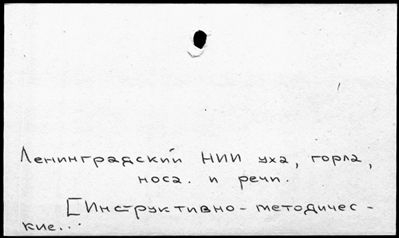 Ленинградский НИИ уха, горла,
носа. и речи.
[Инструктивно-методичес-
кие...